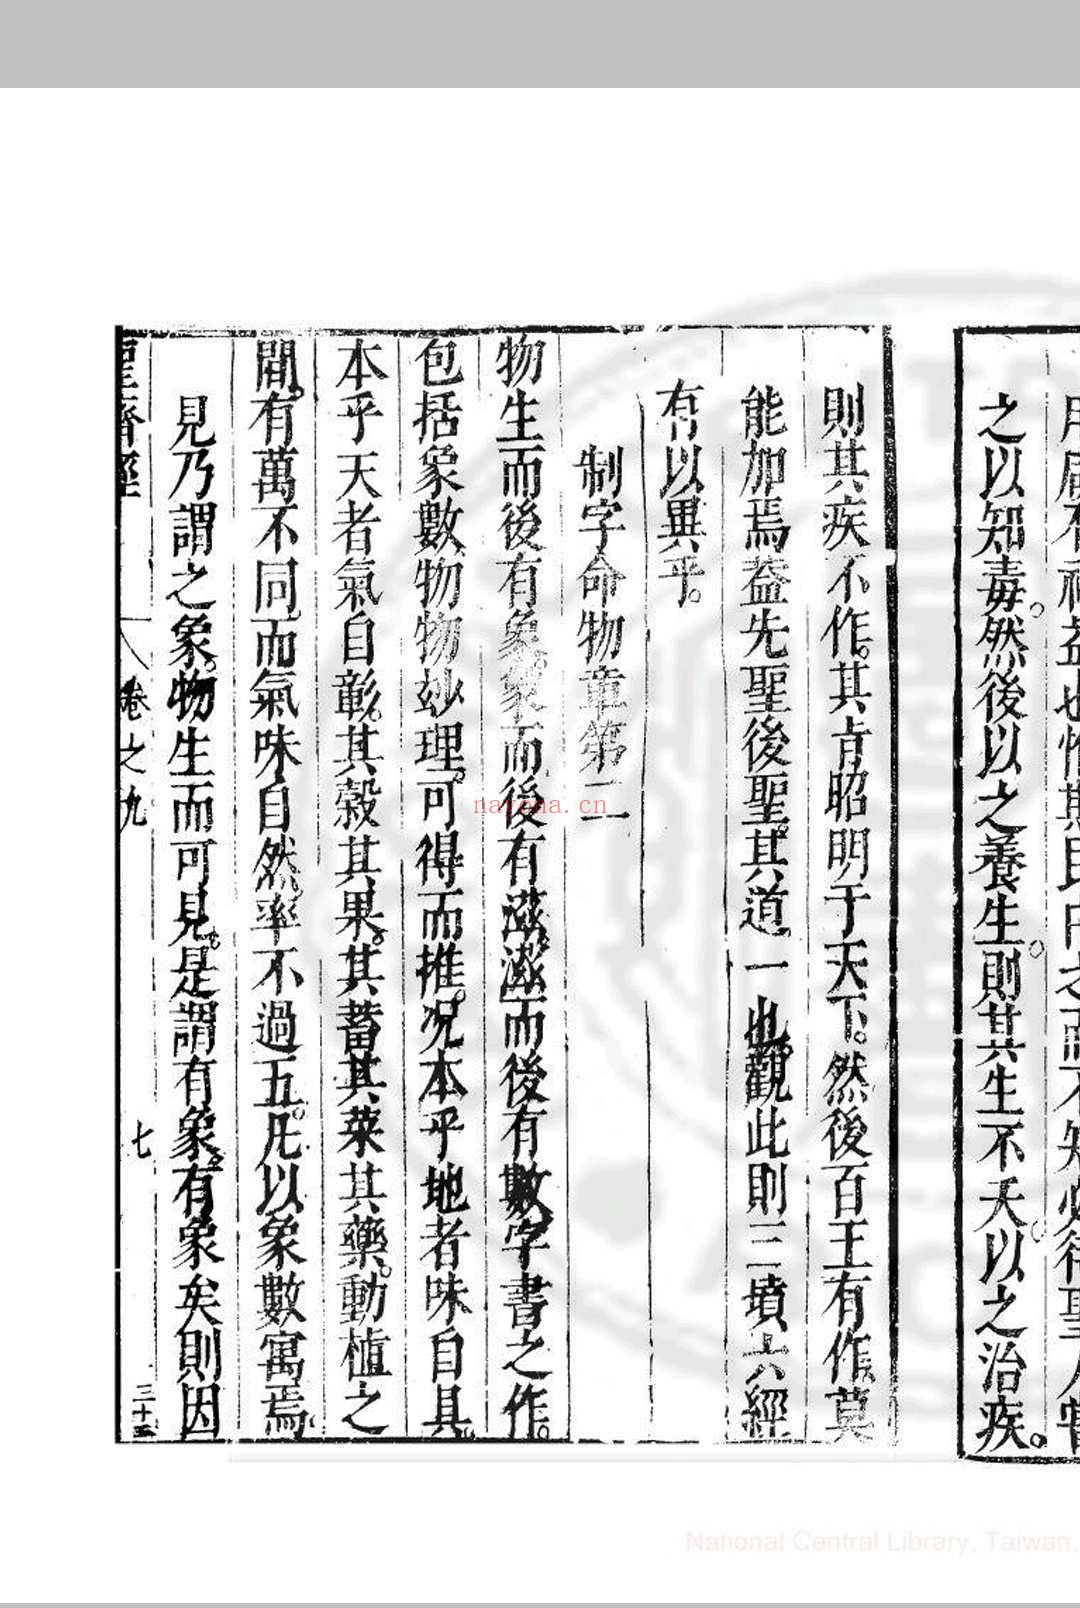 之以知毒。然後以之養生。則其生不夭。以之治疾。
則其疾不作。其旨昭明于天下。然後百王有作。莫
能加焉。葢先聖後聖。其道一也。觀此則三墳六經
有以異乎。
制字命物章第二
物生而後有象。象而後有滋。滋而後有數。字書之作。
包括象數。物物妙理。可得而推。況本乎地者味自具。
本乎天者氣自彰。其穀其果。其蓄其菜其藥。動植之
間。有萬不同。而氣味自然。率不過五。凡以象數寓焉。
見乃謂之象。物生而可見。是謂有象。有象矣則因
聖濟經
卷之九
七
nayona.cn
National Central Library, Taiwan,